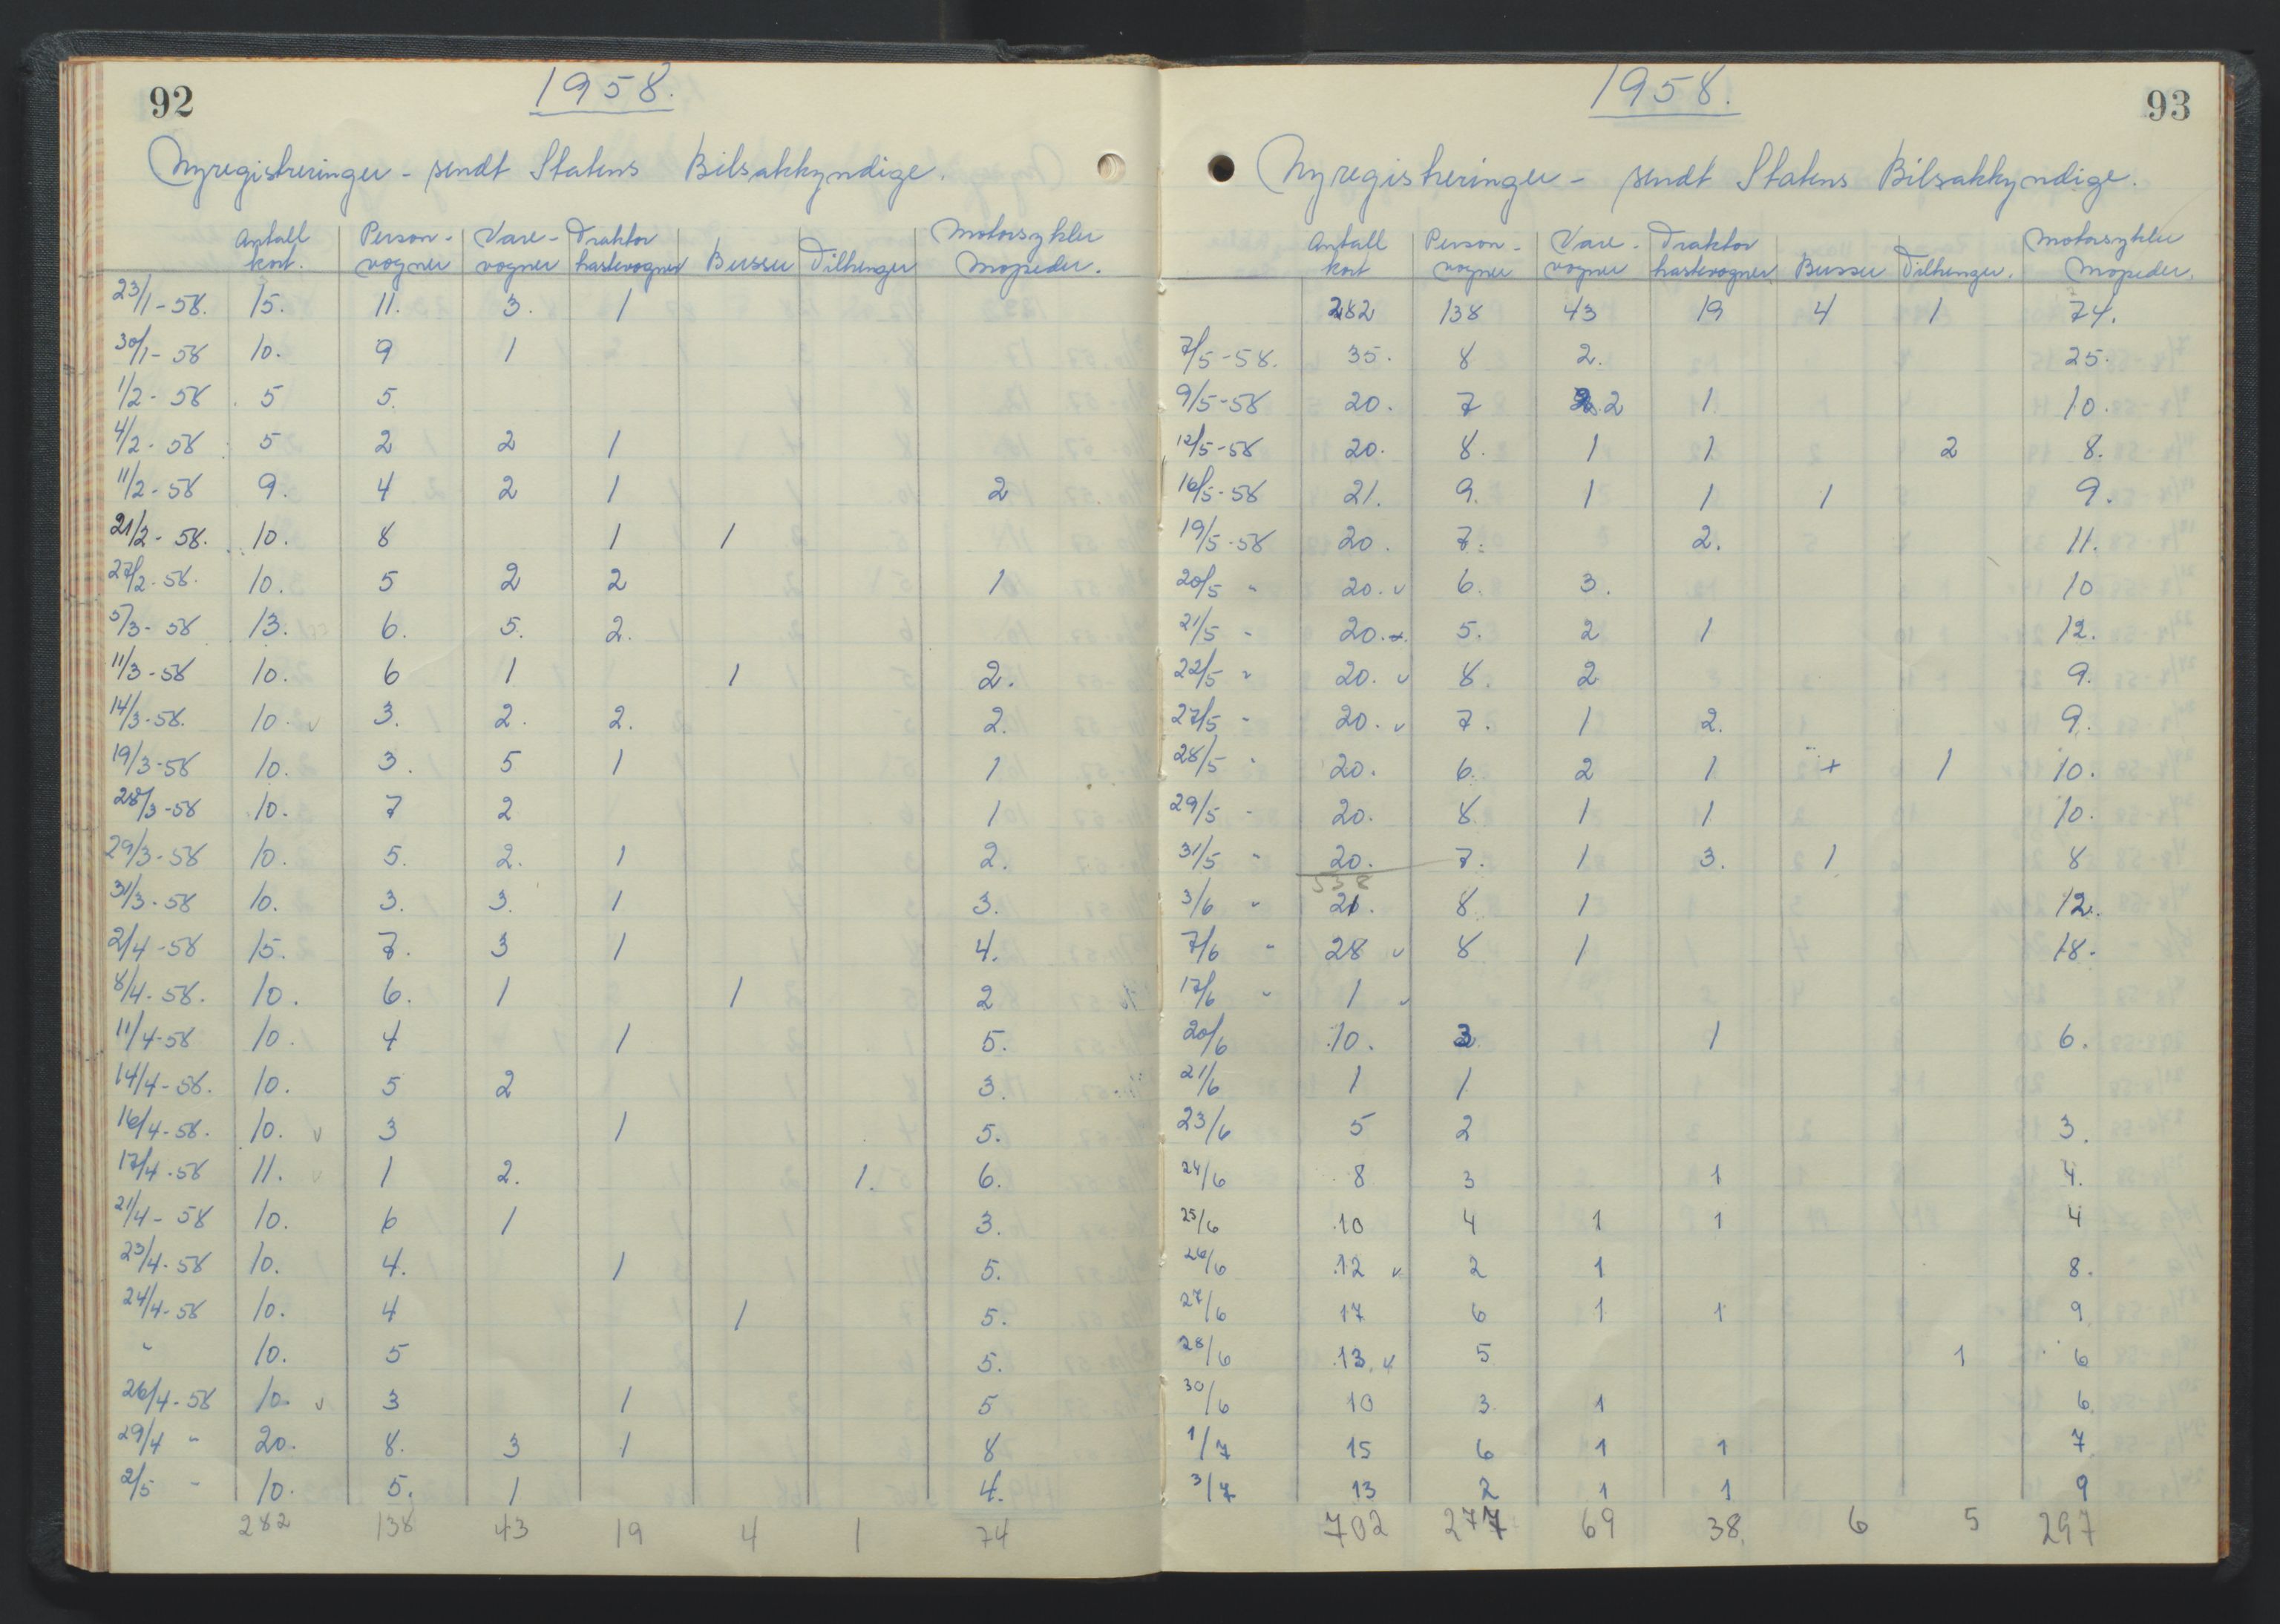 92
1958.
Nyregistreringer - sendt Statens Bilsakkyndige.
Antall kort. Person-vogner Vare-vogner Traktor hastevogner Busser Tilhenger Motorsykler Mopeder.
23/1-58. 15. 11. 3. 1
30/1-58 10. 9 1
1/2-58 5 5.
4/2-58 5 2 2 1
11/2-58 9. 4 2 1 2
21/2-58. 10. 8 1 1
27/2-58. 10. 5 2 2 1
5/3-58 13. 6. 5. 2.
11/3-58 10. 6 1 1 2.
14/3-58. 10. v 3. 2. 2. 2.
19/3-58 10. 3. 5 1 1
28/3-58 10. 7 2 1
29/3-58 10. 5. 2. 1 2.
31/3-58 10. 3. 3. 1 3.
2/4-58 15. 7. 3 1 4.
8/4-58. 10. 6. 1 1 2
11/4-58 10. 4 1 5.
14/4-58. 10. 5 2 3.
16/4-58. 10. v 3 1 5.
17/4-58 11. v 1 2. 1. 6.
21/4-58 10. 6 1 3.
23/4-58 10. 4. 1 5.
24/4-58 10. 4 1 5.
" 10. 5 5.
26/4-58 10. v 3 1 5
29/4 " 20. 8. 3 1 8
2/5 " 10. 5. 1 4.
282 138 43 19 4 1 74
93
1958.
Nyregistreringer - sendt Statens Bilsakkyndige.
Antall kort Person-vogner Vare-vogner Traktor hastevogner Busser Tilhenger. Motorsykler Mopeder.
282 138 43 19 4 1 74.
7/5-58. 35. 8 2. 25.
9/5-58 20. 7 2 1 10.
12/5-58 20. 8. 1 1 2 8.
16/5-58 21. 9. 1 1 1 9.
19/5-58 20. 7. 2. 11.
20/5 " 20. v 6. 3. 10
21/5 " 20. 5. 2 1 12.
22/5 " 20. v 8. 2 9.
27/5 " 20. v 7. 1 2. 9.
28/5 " 20. 6. 2 1 + 1 10.
29/5 " 20. 8. 1 1 10.
31/5 " 20. 7. 1 3. 1 8
538
3/6 " 21. 8 1 12.
7/6 " 28 v 8 1 18.
17/6 " 1 v
20/6 10. 3 1 6.
21/6 1 1
23/6 5 2 3.
24/6 8 3 1 4.
25/6 10 4 1 1 4
26/6 12 v 2 1 8.
27/6 17 6 1 1 9
28/6 13. v 5 1 6
30/6 10 3 1 6.
1/7 15 6 1 1 7
3/7 13 2 1 1 9
702 277 69 38. 6 5 297